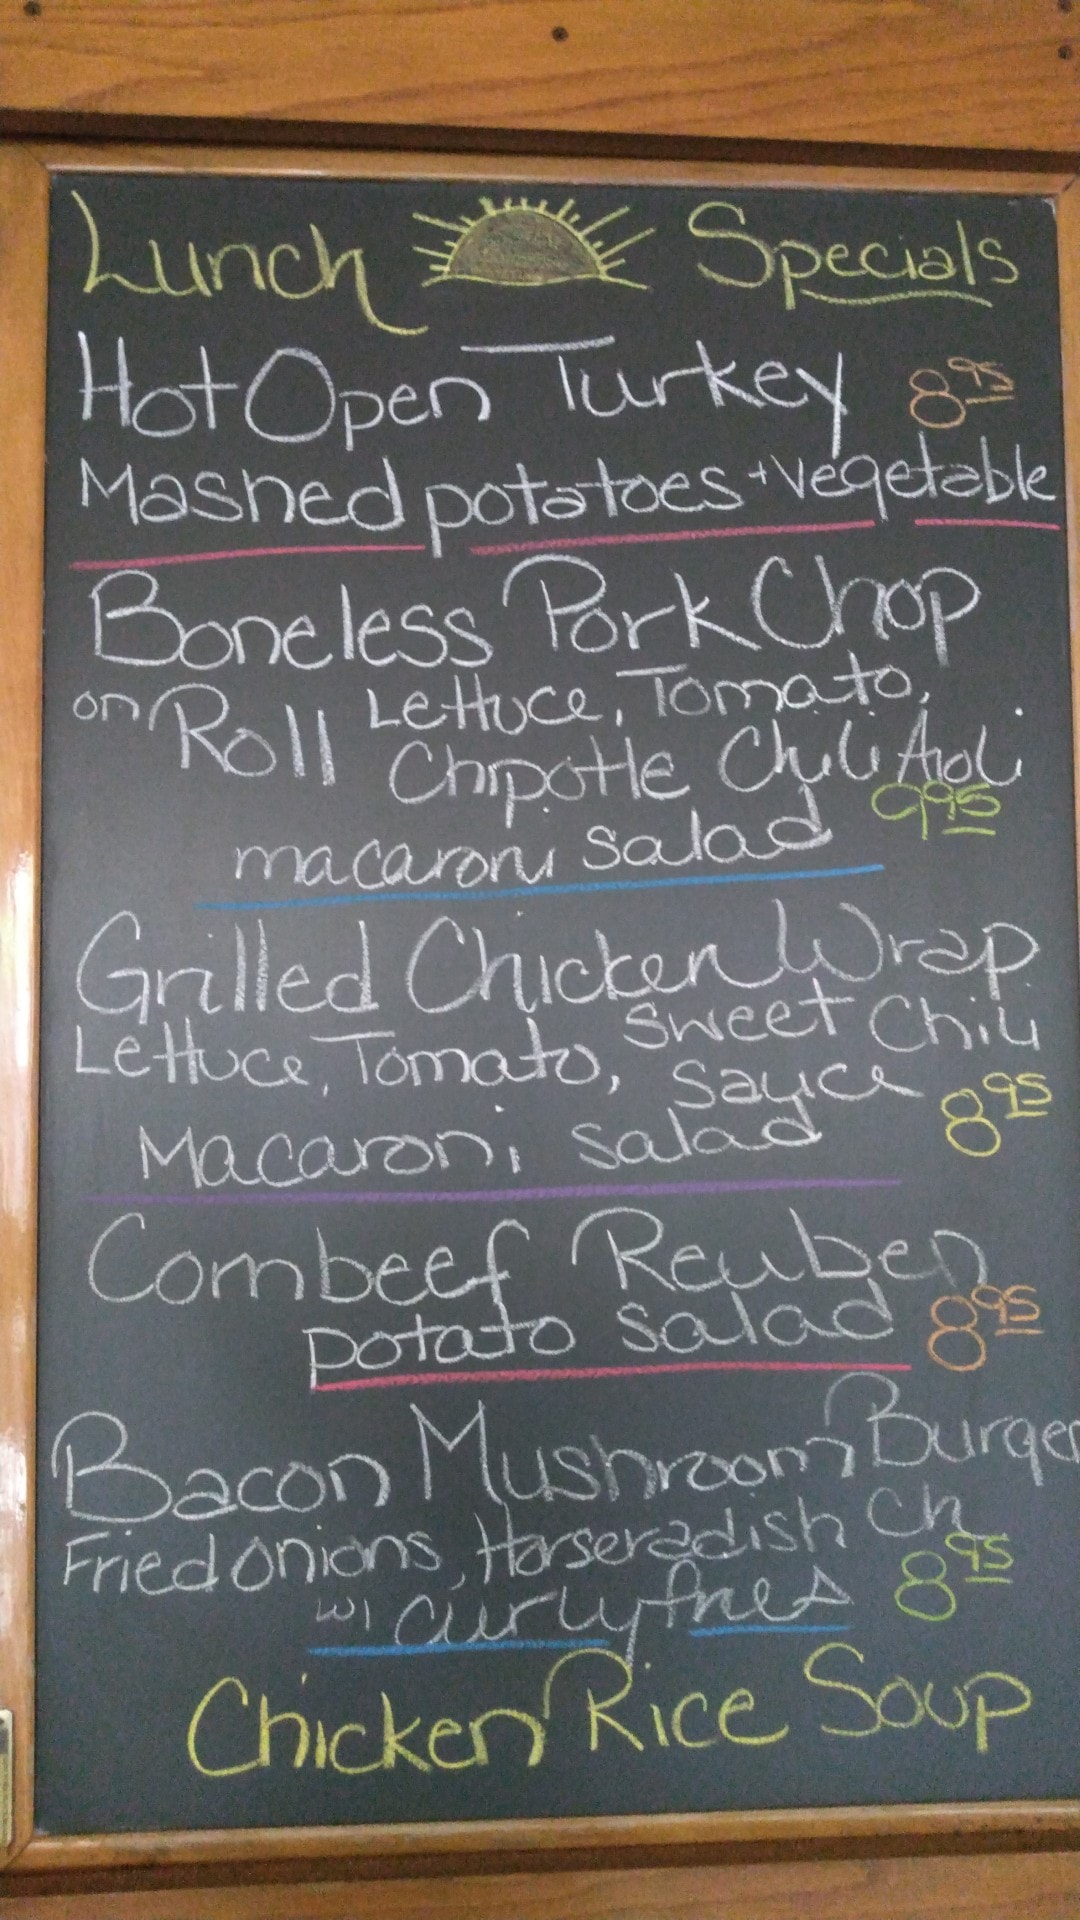 Lunch Specials
Hot Open Turkey 8.95
Mashed potatoes + vegetable
Boneless Pork Chop
on Roll Lettuce, Tomato,
Chipotle Chili Aioli
macaroni salad 9.95
Grilled Chicken Wrap
Lettuce, Tomato, Sweet Chili
Sauce
Macaroni salad 8.95
Cornbeef Reuben
potato salad 8.95
Bacon Mushroom Burger
Fried onions, Horseradish Ch
w/ curly fries 8.95
Chicken Rice Soup